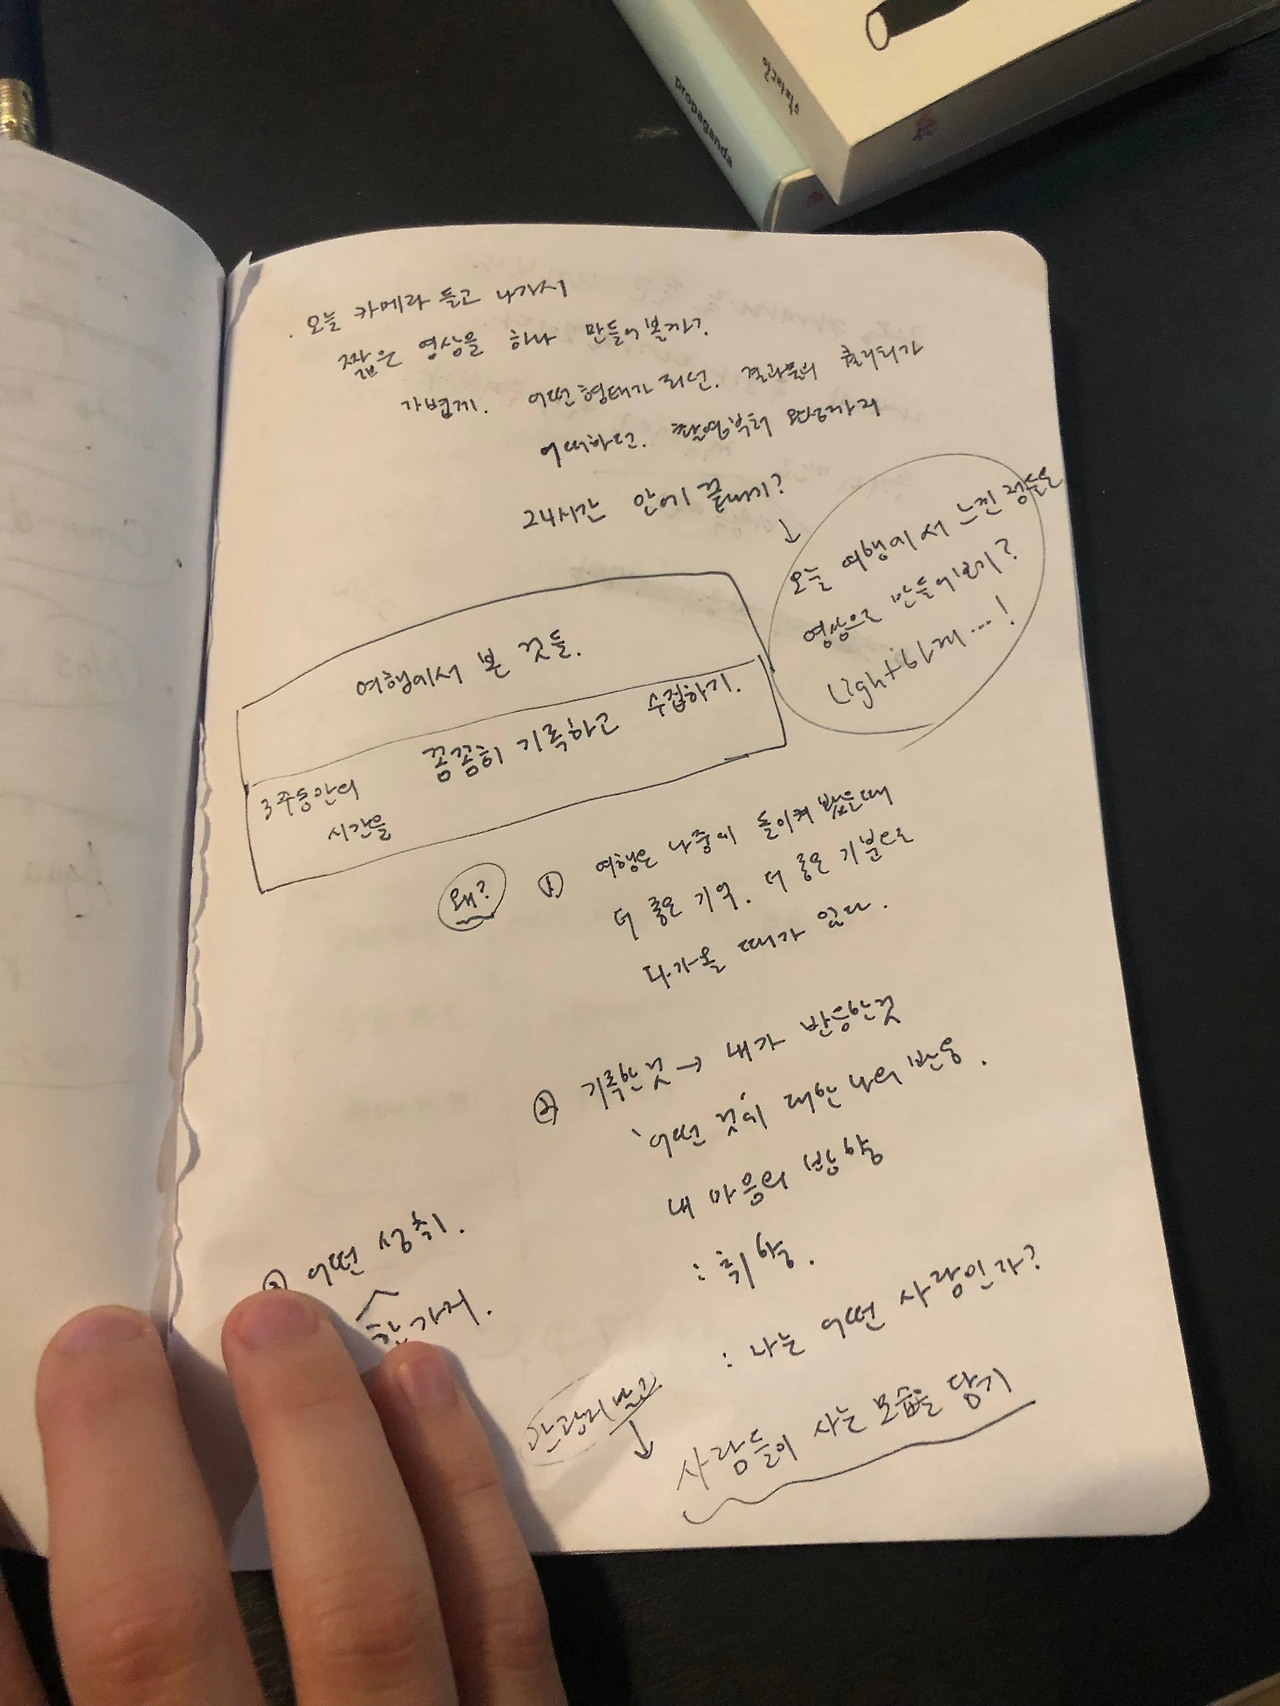 propaganda
아무튼, 술
. 오늘 카메라 들고 나가서
짧은 영상을 하나 만들어볼까?
가볍게. 어떤형태가 되던. 결과물의 퀄리티가
어떠하던. 촬영부터 완성까지
24시간 안에 끝내기?
↓
오늘 여행에서 느낀 점들을
영상으로 만들어보기?
Light하게...!
여행에서 본 것들.
3주동안의
시간을
꼼꼼히 기록하고 수집하기.
왜?
① 여행은 나중에 돌이켜 봤을때
더 좋은 기억. 더 좋은 기분으로
다가올 때가 있다.
② 기록한것 → 내가 반응한것
'어떤 것'에 대한 나의 반응.
내 마음의 방향
: 취향.
: 나는 어떤 사람인가?
③ 어떤 성취.
한가지.
관광지 말고
↓
사람들이 사는 모습을 담기